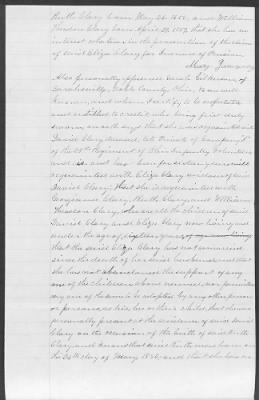 Ruth Clary born May 26. 1856, and William
Theodore Clary born April 29, 1859 that she has no
interest whatever in the prosecution of the claim
of said Eliza Clary for Increase of Pension.
Mary
Also personally appeared Sarah
Sarahsville, Noble County, Ohio, to me well
known, and whom I certify to be respectable
and entitled to credit who being first duly
sworn on oath says that she was
David Clary deceased, late Private of Company
of the Regiment of Ohio Infantry Volunteers
and is and has been for sixteen years well
acquainted with Eliza Clary widow of said
David Clary; that she is acquainted with
Clary, Ruth Clary, and William
Theodore Clary, who are all the children of said
David Clary and Eliza Clary now living and
under the age of sixteen years,
that the said Eliza Clary has not remarried
since the death of her said husband and that
she has not abandoned the support of any
one of the children above named, nor permitted
any one of them to be adopted by any other person
or persons as his, her or their child, that she was
personally present at the residence of said David
Clary on the occasion of the birth of said Ruth
Clary and knows that said Ruth was born on
the 26th day of May 1856, and that she was on